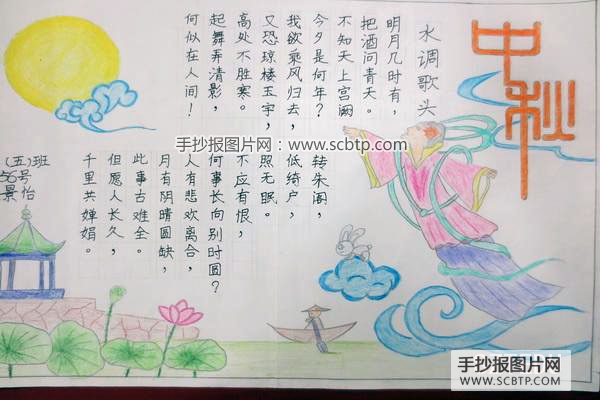 中秋
水调歌头
明月几时有，
把酒问青天。
不知天上宫阙
今夕是何年？
我欲乘风归去，
又恐琼楼玉宇，
高处不胜寒。
起舞弄清影，
何似在人间！
转朱阁，
低绮户，
照无眠。
不应有恨，
何事长向别时圆？
人有悲欢离合，
月有阴晴圆缺，
此事古难全。
但愿人长久，
千里共婵娟。
(五)班
56号
景怡
手抄报图片网：www.scbtp.com
手抄报图片网
WWW.SCBTP.COM